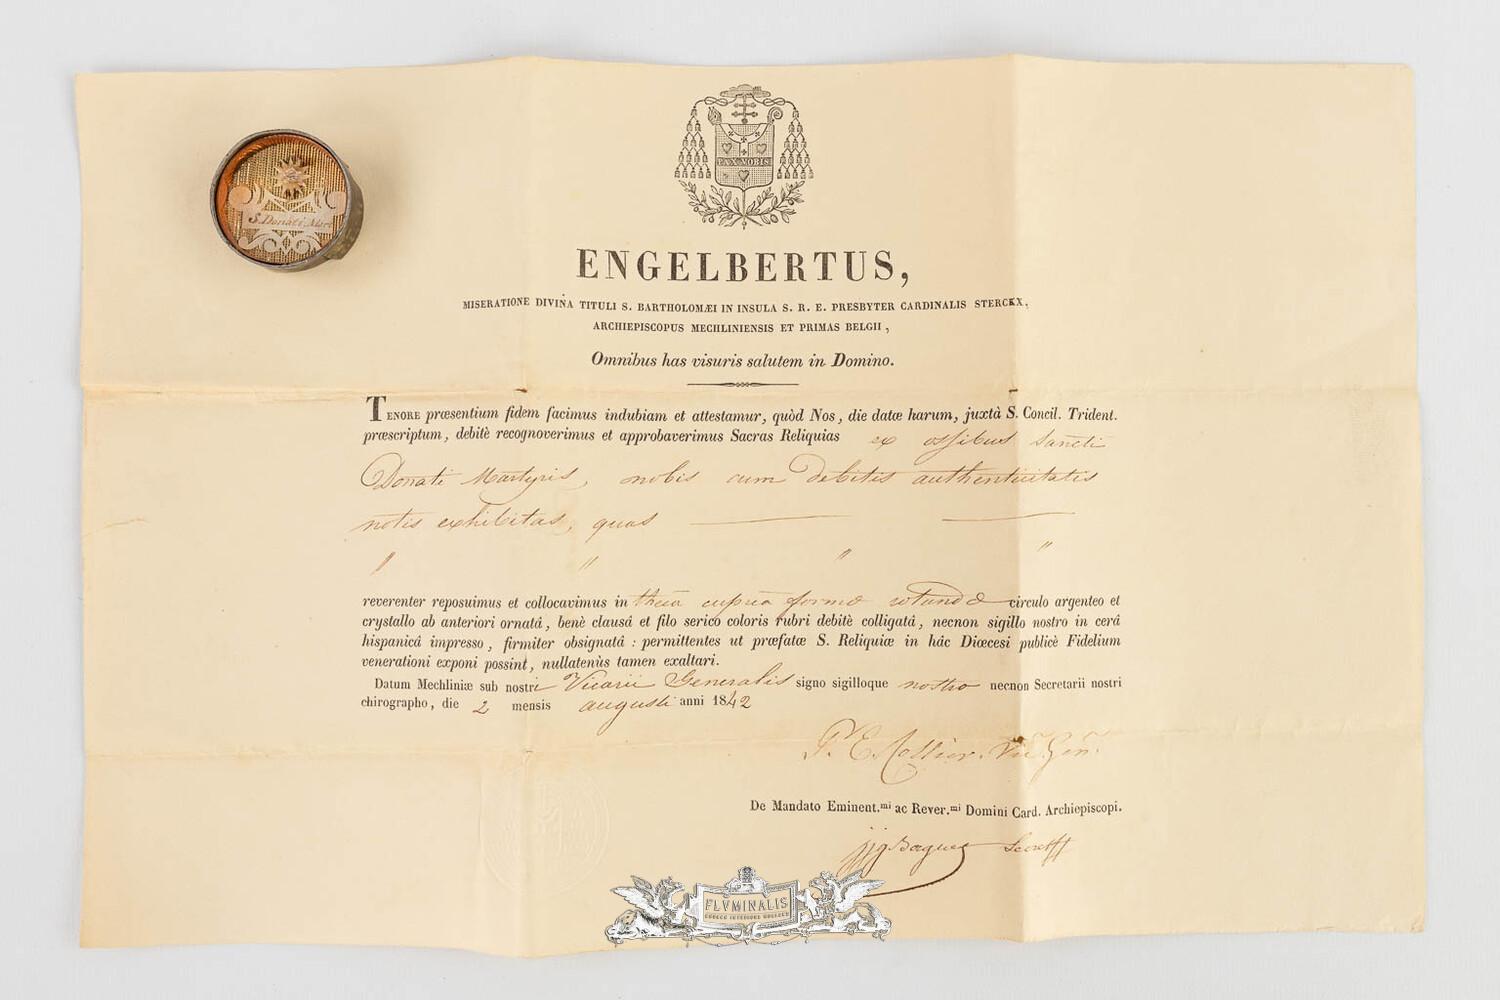 S. Donati. Mar.
PAX VOBIS
ENGELBERTUS,
MISERATIONE DIVINA TITULI S. BARTHOLOMÆI IN INSULA S. R. E. PRESBYTER CARDINALIS STERCKX,
ARCHIEPISCOPUS MECHLINIENSIS ET PRIMAS BELGII,
Omnibus has visuris salutem in Domino.
TENORE præsentium fidem facimus indubiam et attestamur, quòd Nos, die datæ harum, juxtà S. Concil. Trident.
præscriptum, debitè recognoverimus et approbaverimus Sacras Reliquias ex ossibus Sancti
Donati Martyris, nobis cum debitis authenticitatis
notis exhibitas, quas
" " " "
reverenter reposuimus et collocavimus in theca cuprea formæ rotundæ circulo argenteo et
crystallo ab anteriori ornatâ, benè clausâ et filo serico coloris rubri debitè colligatâ, necnon sigillo nostro in cerâ
hispanicâ impresso, firmiter obsignatâ : permittentes ut præfatæ S. Reliquiæ in hâc Diœcesi publicè Fidelium
venerationi exponi possint, nullatenùs tamen exaltari.
Datum Mechliniæ sub nostri Vicarii Generalis signo sigilloque nostro necnon Secretarii nostri
chirographo, die 2 mensis augusti anni 1842
Vic. Gen.
De Mandato Eminent.mi ac Rever.mi Domini Card. Archiepiscopi.
FLVMINALIS